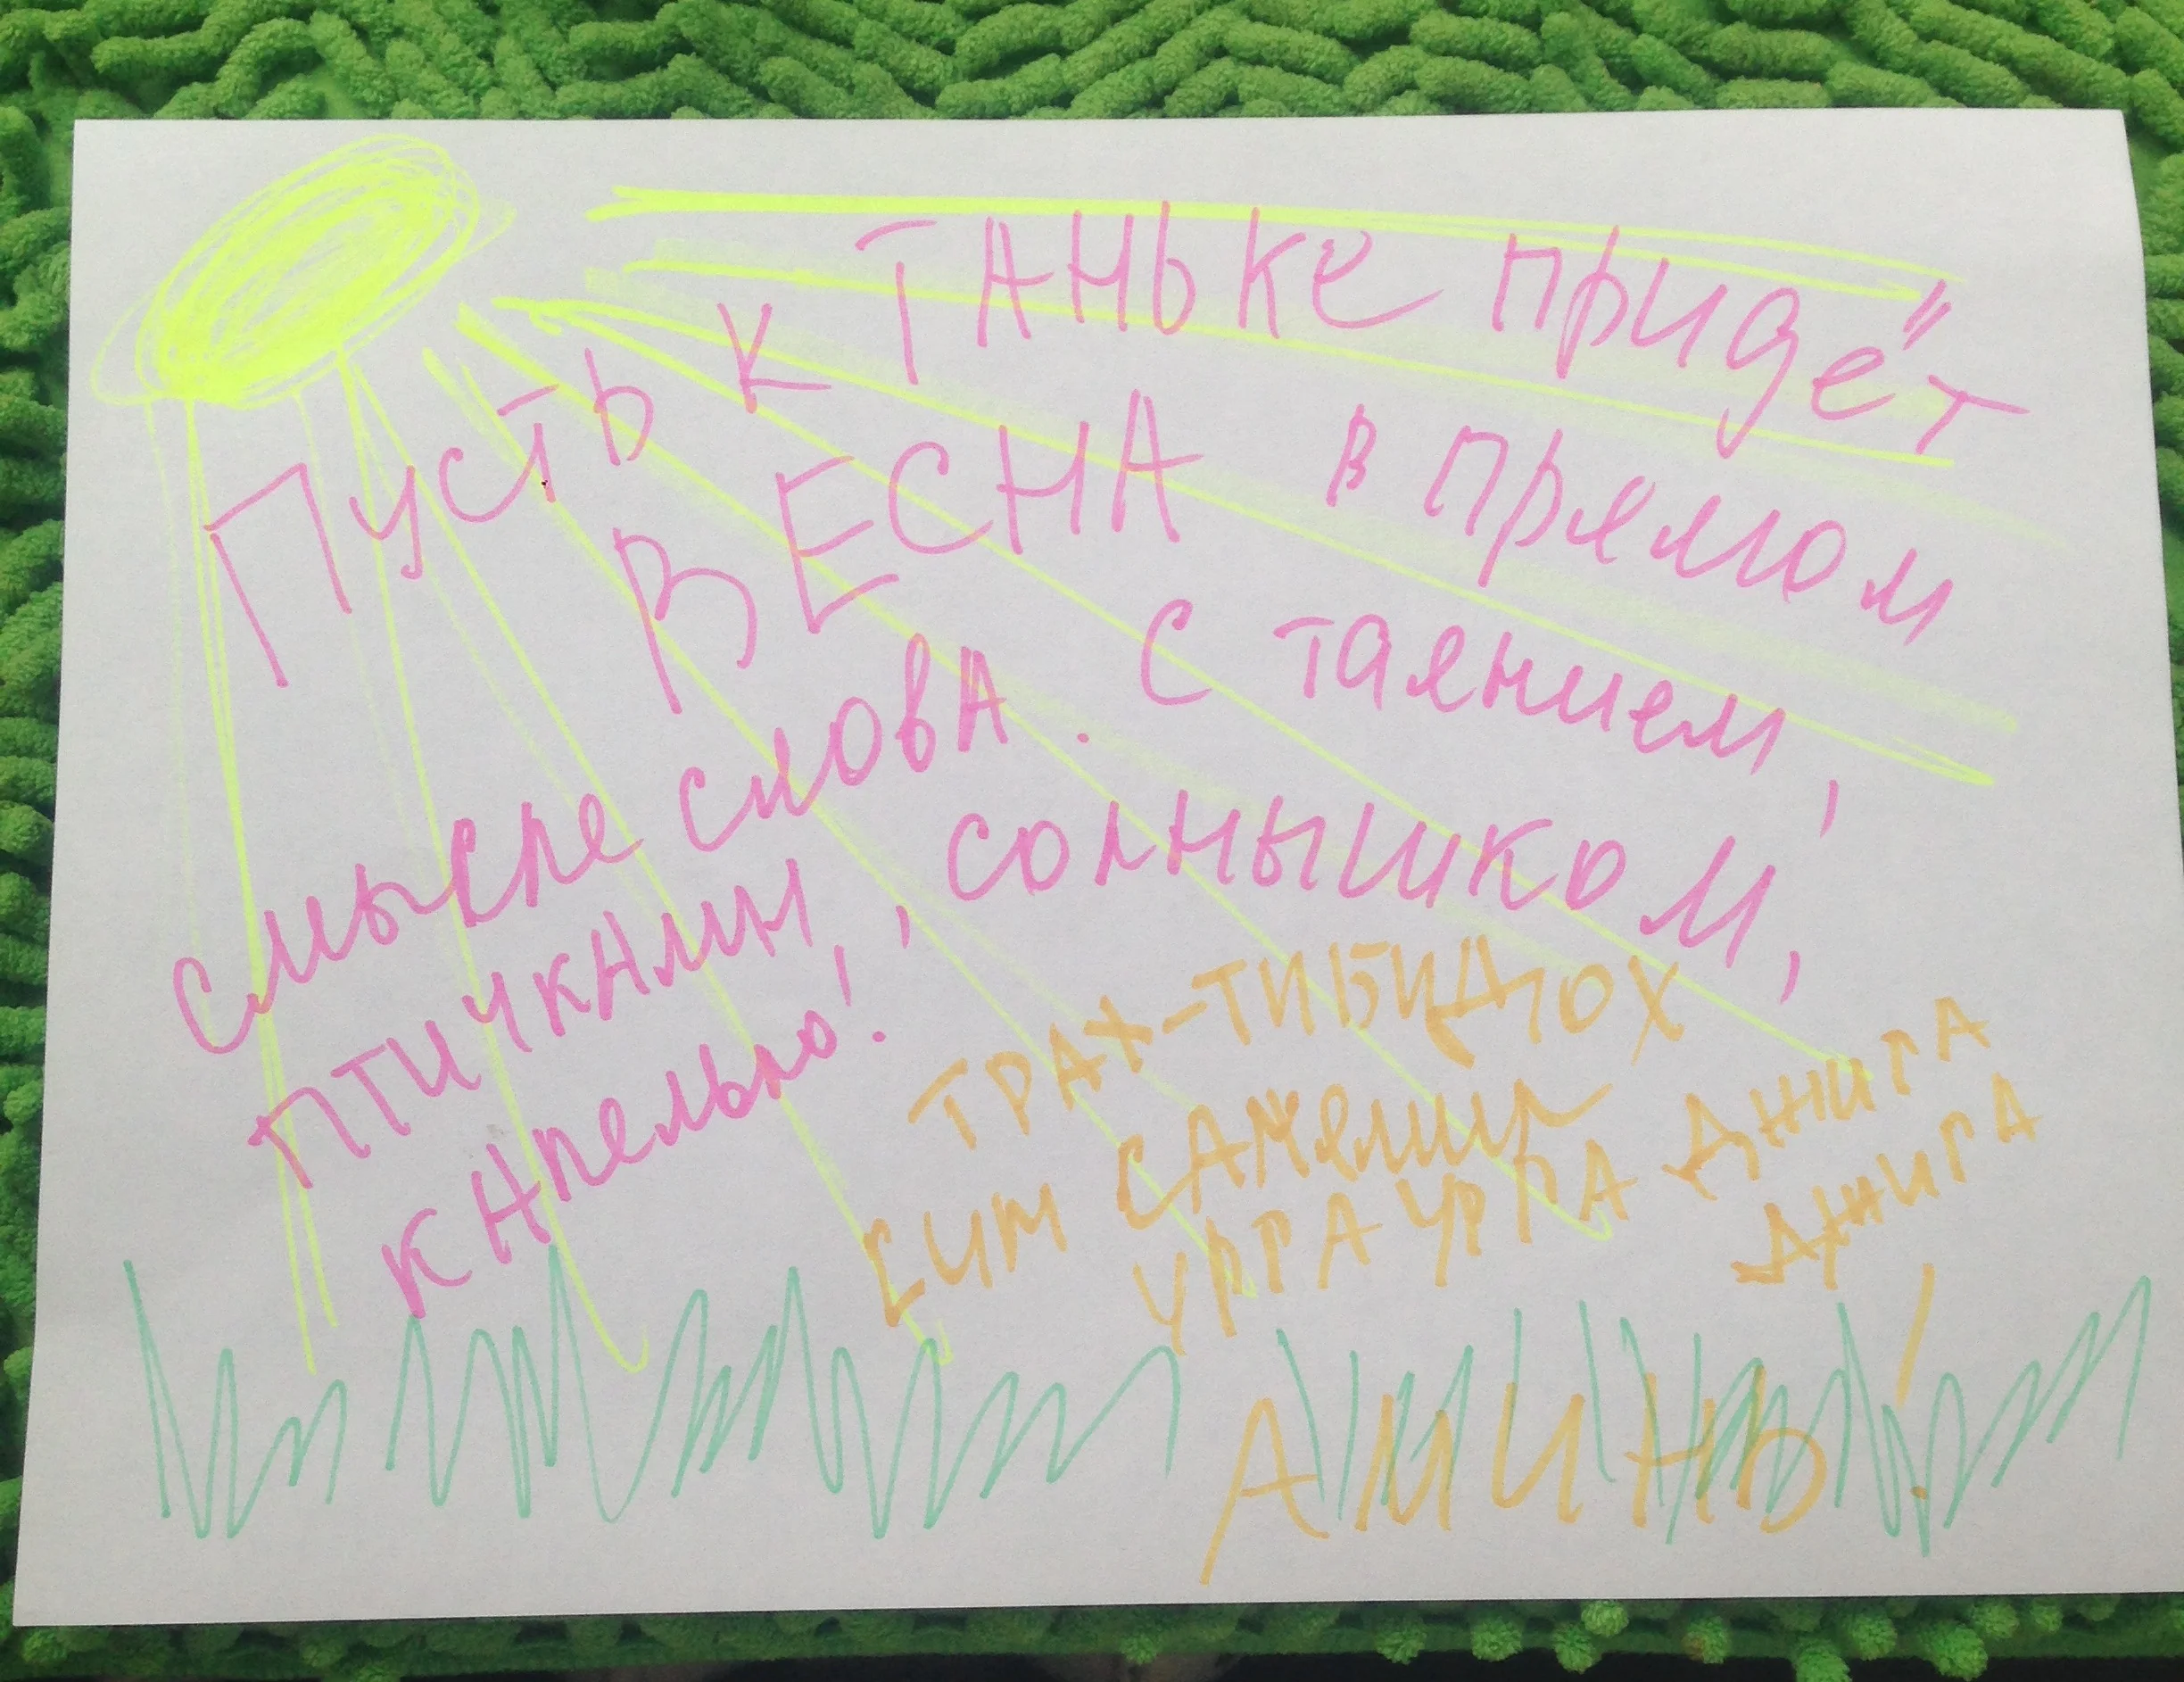 Пусть к Таньке придёт
ВЕСНА в прямом
смысле слова. С таянием,
птичками, солнышком,
капелью!
ТРАХ-ТИБИДОХ
СИМ САЛЯЛИМ
УРГА УРГА ДЖИГА
ДЖИГА
АМИНЬ!